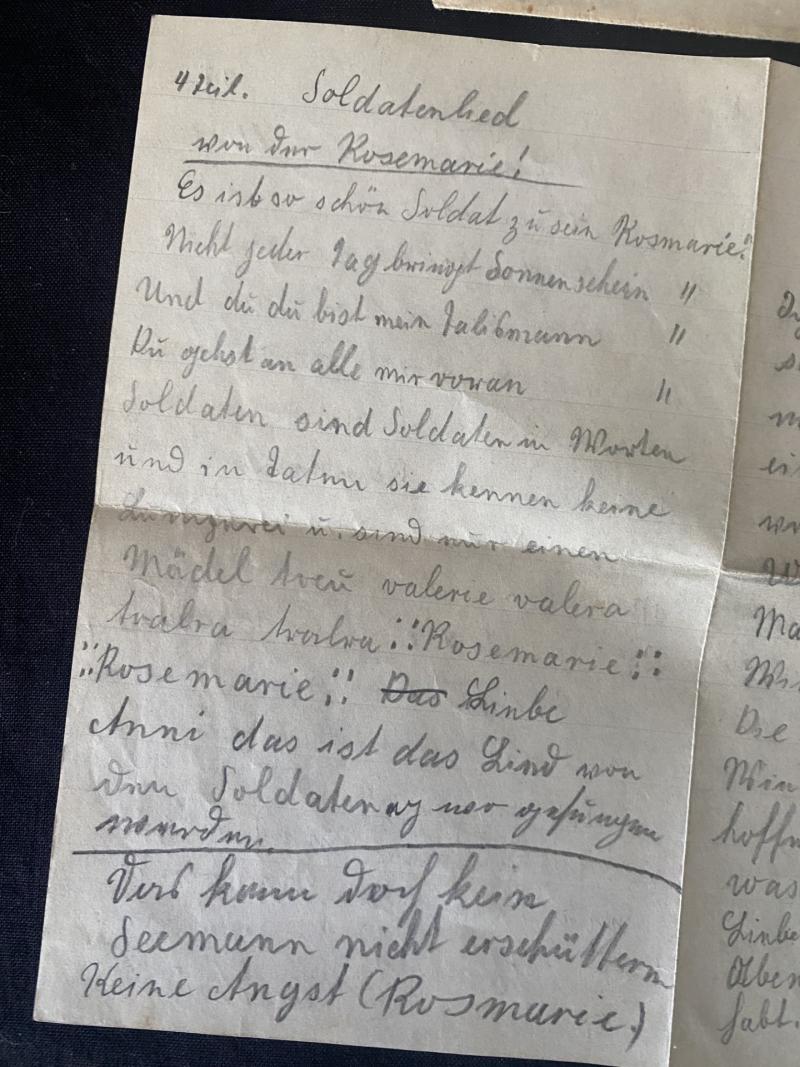 4 Teil. Soldatenlied
von der Rosemarie!
Es ist so schön Soldat zu sein Rosmarie."
Nicht jeder Tag bringt Sonnenschein "
Und du du bist mein Talismann "
Du gehst an alle mir voran "
Soldaten sind Soldaten in Worten
und in Taten sie kennen keine
Lumperei u. sind nur einen
Mädel treu valerie valera
tralra tralra :: Rosemarie ::
:: Rosemarie :: Das Liebe
Anni das ist das Lied von
den Soldaten gesungen
werden.
Das kann doch kein
Seemann nicht erschüttern
Keine Angst (Rosmarie.)
ei
Ma
Die
Win
hoff
was
Liebe
Aben
habt.